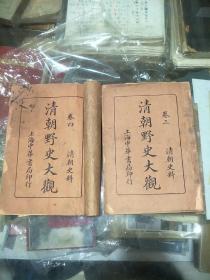 卷四
清朝野史大觀
清朝史料
上海中華書局印行
卷三
清朝野史大觀
清朝史料
上海中華書局印行